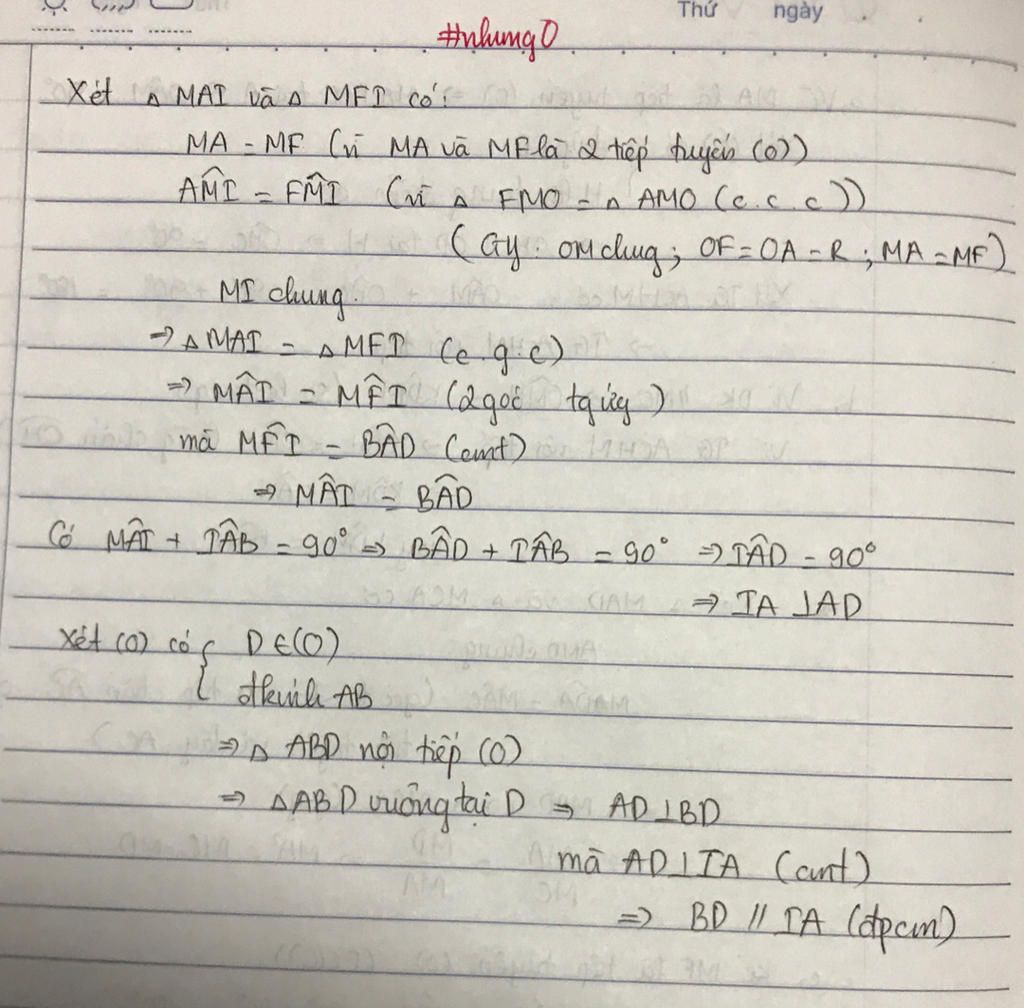 Thứ ngày
#nhungO
Xét △ MAI và △ MFI có:
MA = MF (vì MA và MF là 2 tiếp tuyến (O))
AM̂I = FM̂I (vì △ FMO = △ AMO (c.c.c))
(Gy: OM chug; OF = OA = R; MA = MF)
MI chung.
⇒ △ MAI = △ MFI (c.g.c)
⇒ MÂI = MF̂I (2 góc tg ứg)
mà MF̂I = BÂD (cmt)
⇒ MÂI = BÂD
Có MÂI + IÂB = 90° ⇒ BÂD + IÂB = 90° ⇒ IÂD = 90°
⇒ IA ⊥ AD
Xét (O) có { D ∈ (O)
đkính AB
⇒ △ ABD nội tiếp (O)
⇒ △ ABD vuông tại D ⇒ AD ⊥ BD
mà AD ⊥ IA (cmt)
⇒ BD // IA (đpcm)